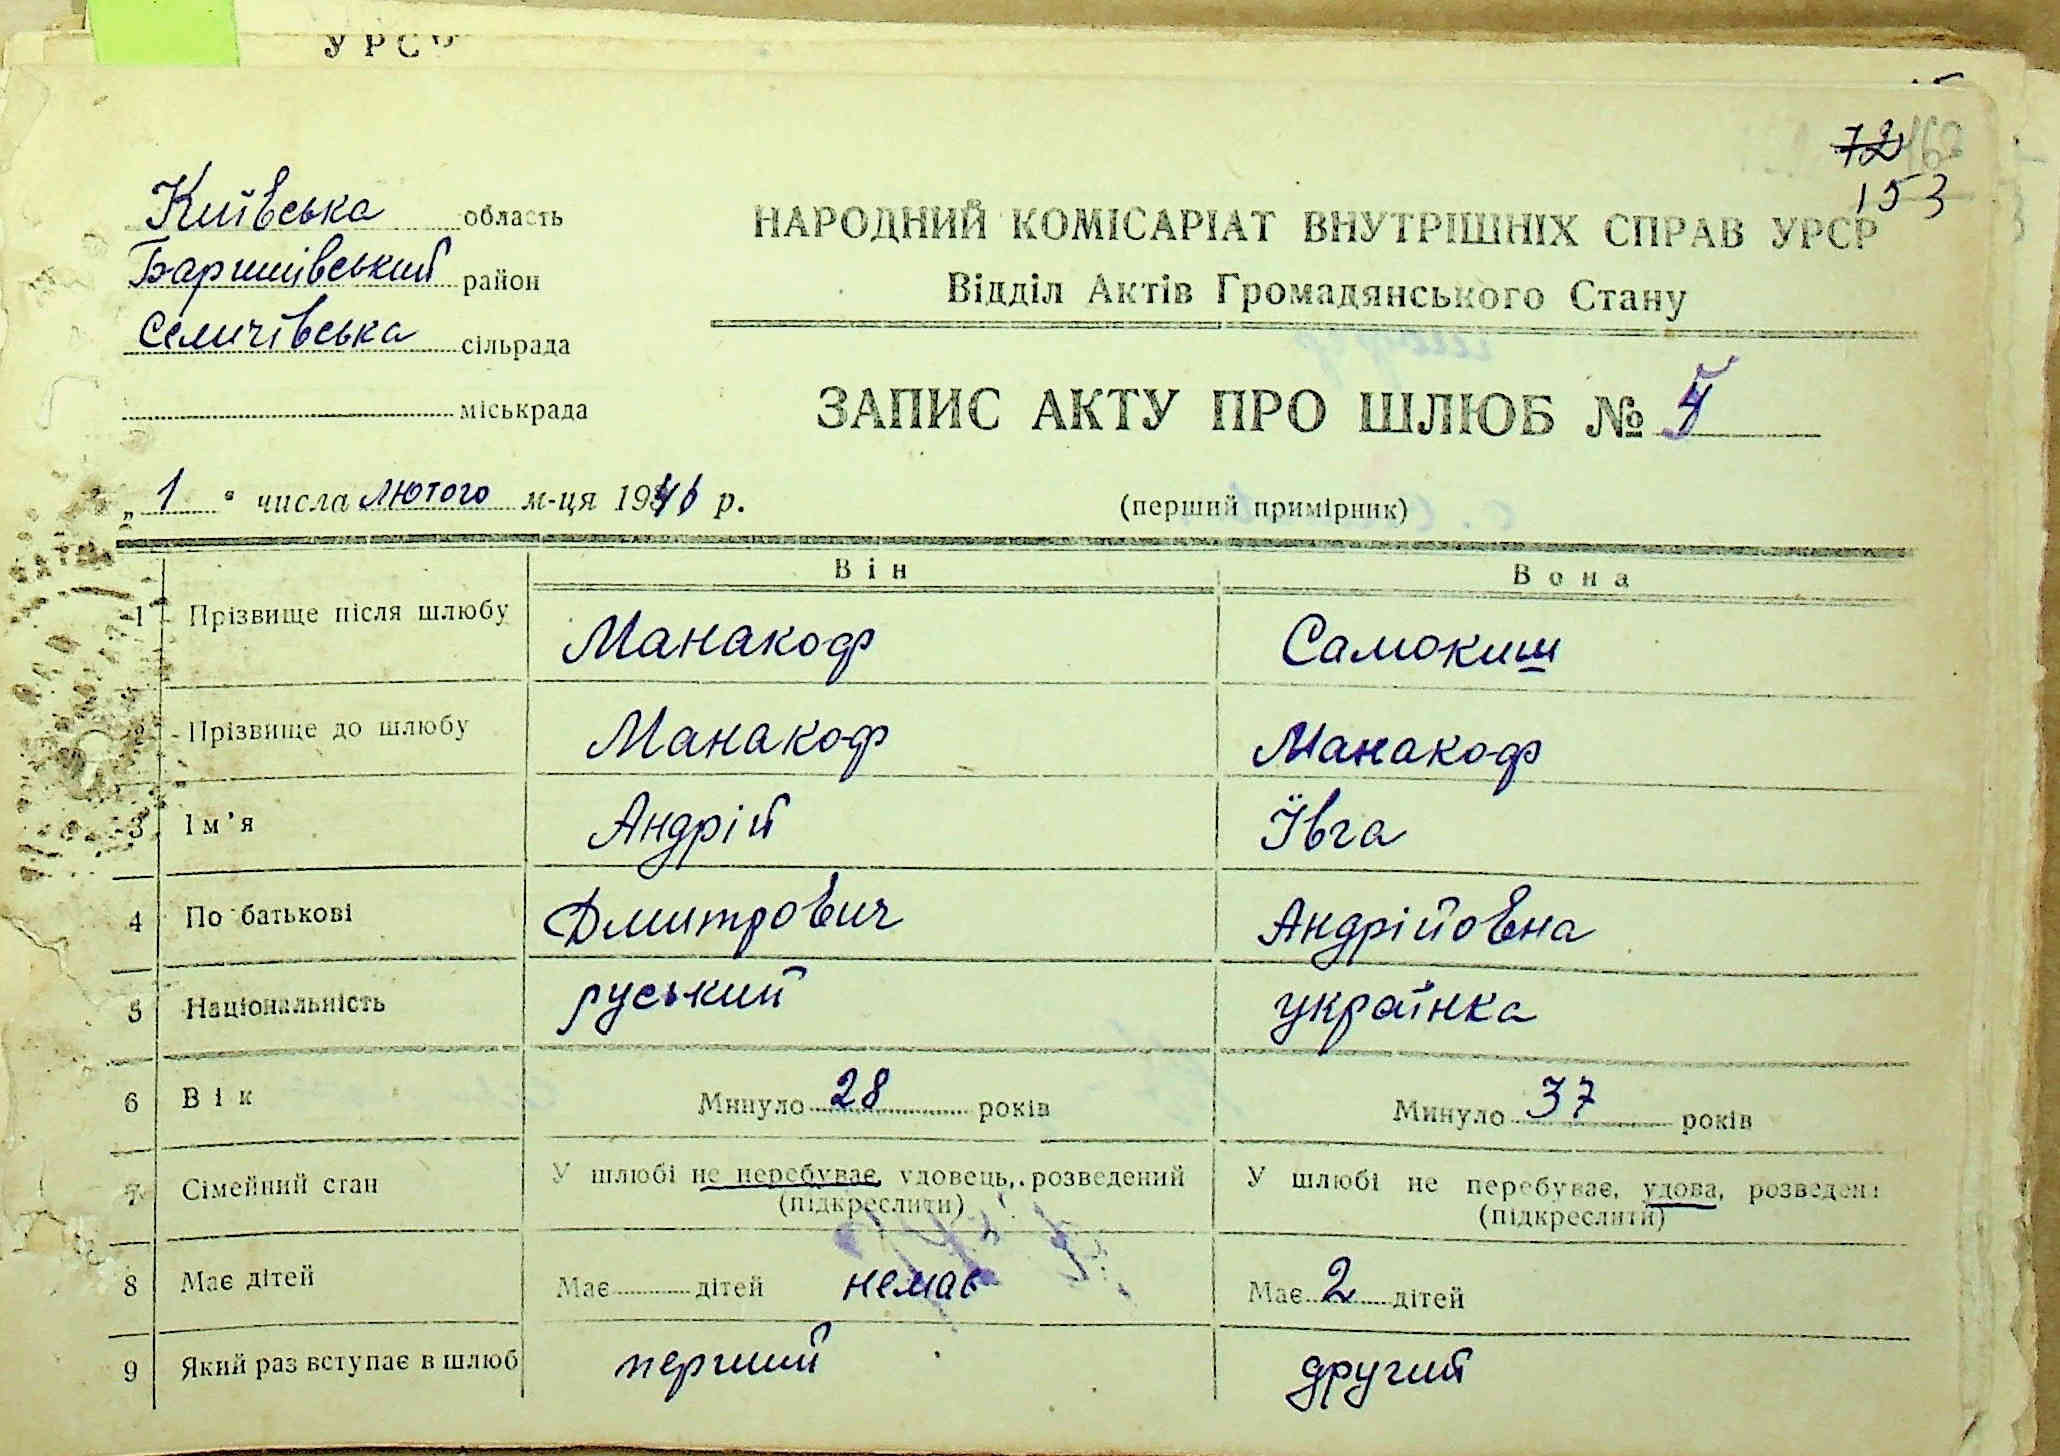 УРСР
72
153
Київська область
НАРОДНИЙ КОМІСАРІАТ ВНУТРІШНІХ СПРАВ УРСР
Баришівський район
Відділ Актів Громадянського Стану
Селичівська сільрада
міськрада
ЗАПИС АКТУ ПРО ШЛЮБ №
„ 1 " числа лютого м-ця 1941 р.
(перший примірник)
Він Вона
1 Прізвище після шлюбу Манакоф Самокиш
2 Прізвище до шлюбу Манакоф Манакоф
3 Ім'я Андрій Ївга
4 По батькові Дмитрович Андрійовна
5 Національність руський українка
6 Вік Минуло 28 років Минуло 37 років
7 Сімейний стан У шлюбі не перебуває, удовець, розведений У шлюбі не перебуває, удова, розведена
(підкреслити) (підкреслити)
8 Має дітей Має дітей немає Має 2 дітей
9 Який раз вступає в шлюб перший другий